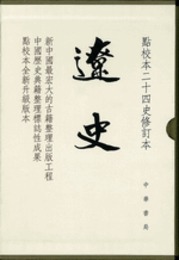 點校本二十四史修訂本
遼史
中華書局
新中國最宏大的古籍整理出版工程
中國歷史典籍整理標誌性成果
點校本全新升級版本